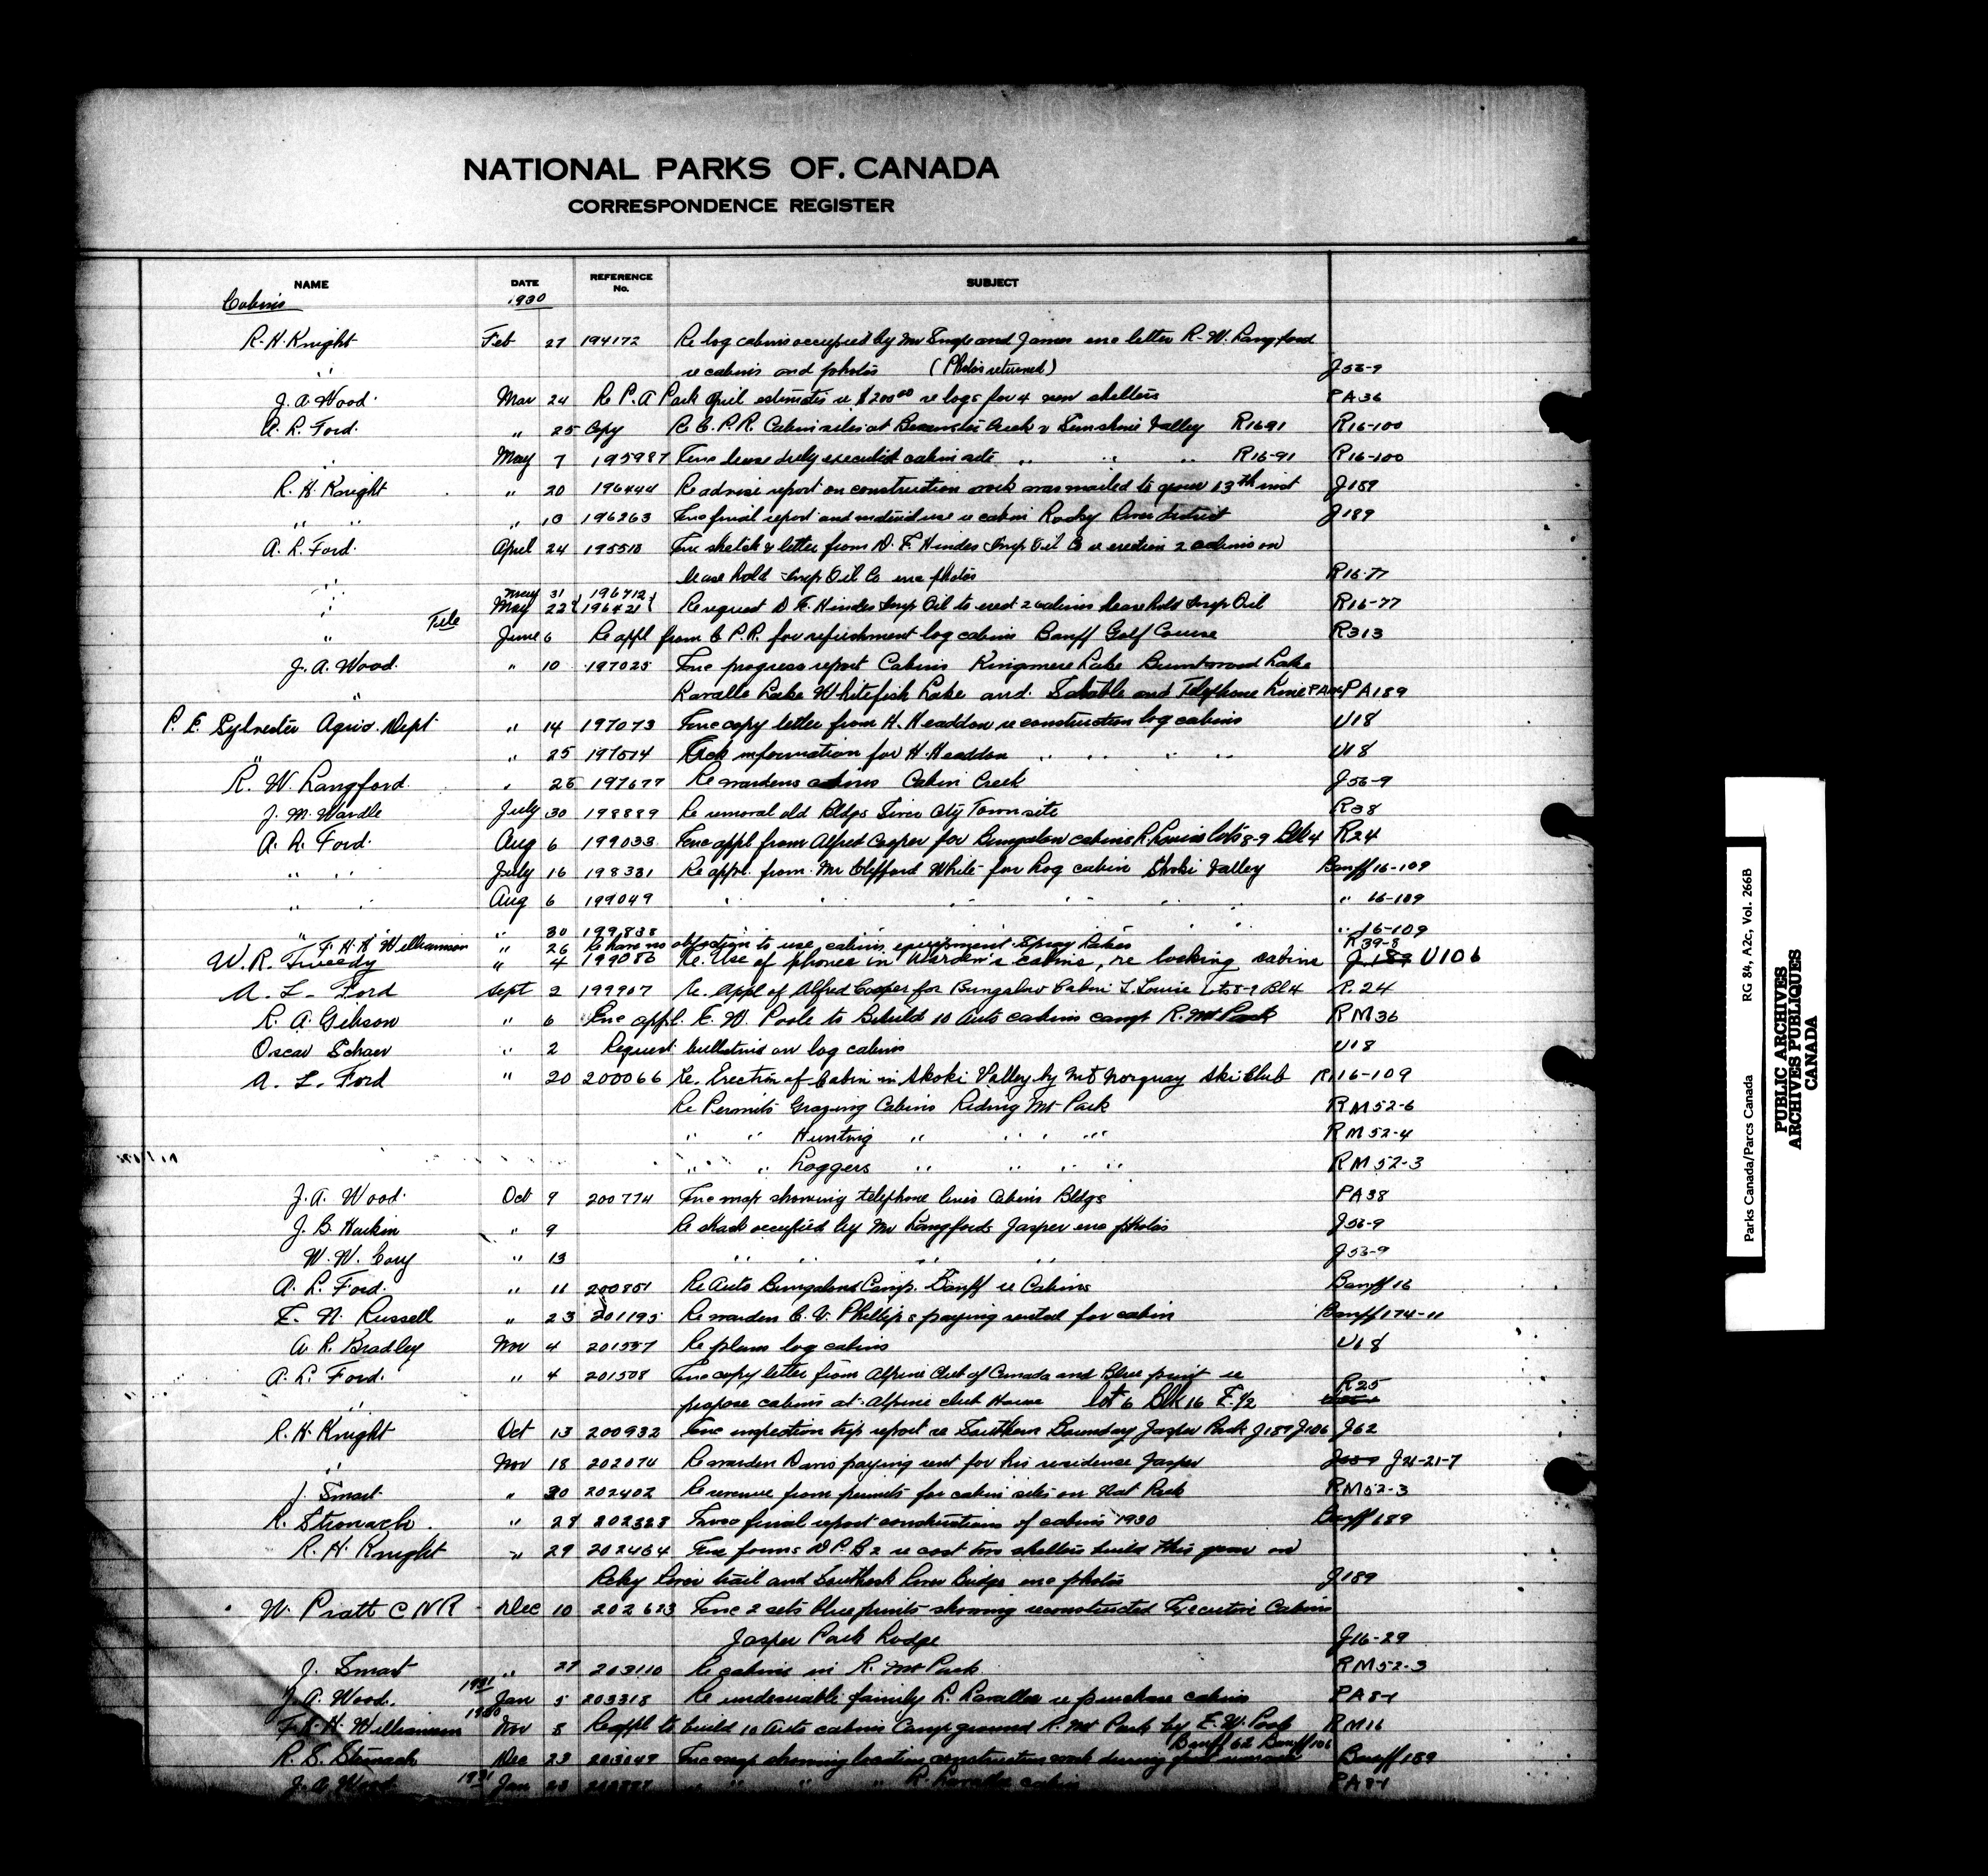 NATIONAL PARKS OF. CANADA
CORRESPONDENCE REGISTER
NAME DATE REFERENCE No. SUBJECT
Cabins 1930
R. H. Knight Feb 27 194172 Re log cabins occupied by Mr and James enc letter R. W. Langford
" re cabins and photos (Photos returned) J56-9
J. A. Wood. Mar 24 Re P. A Park April estimates re $200 00 re logs for 4 new shelters PA36
A. L. Ford. " 25 Copy Re C. P. R. Cabin sites at Brewster Creek & Sunshine Valley R1691 R16-100
" May 7 195987 Enc lease duly executed cabin site " " " R16-91 R16-100
R. H. Knight " 20 196444 Re advise report on construction work was mailed to your 13th inst J189
" " " 10 196263 Enc final report and re cabin Rocky River district J189
A. L. Ford. April 24 195510 Enc sketch & letter from D. F. Hindes Imp Oil Co re erection 2 cabins on
" lease hold Imp Oil Co enc photos R16-77
May 31 196712
" May 22 196421 Re request D. F. Hindes Imp Oil to erect 2 cabins leasehold Imp Oil R16-77
" Tele June 6 Re appl from C. P. R. for refreshment log cabin Banff Golf Course R313
J. A. Wood. " 10 197025 Enc progress report Cabins Kingsmere Lake Lake
" Lavalle Lake Whitefish Lake and Stable and Telephone Line PA106 PA189
P. E. Sylvester Agric. Dept " 14 197073 Enc copy letter from H. Headdon re construction log cabins U18
" " 25 197514 Ack information for H. Headdon " " " " U18
R. W. Langford. " 28 197677 Re wardens cabins Cabin Creek J56-9
J. M. Wardle July 30 198889 Re removal old Bldgs Silver City Townsite R38
A. L. Ford. Aug 6 199033 Enc appl from Alfred Cooper for Bungalow cabins L. Louise lots 8-9 Blk 4 R24
" " July 16 198331 Re appl. from Mr Clifford White for Log cabin Skoki Valley Banff 16-109
" " Aug 6 199049 " " " " " " " 16-109
" " " 30 199838 " " " " " " " 16-109
F. H. H. Williamson " 26 Re have no objection to use cabins equipment Spray Lakes R39-8
W. R. Tweedy " 4 199086 Re. Use of phones in Warden's cabins, re locking cabins J.189 U106
A. L. Ford Sept 2 199907 Re. Appl of Alfred Cooper for Bungalow Cabin L. Louise Lots 8-9 Bl 4 R.24
R. A. Gibson " 6 Enc appl. E. W. Poole to Rebuild 10 Auto cabins camp R. Mt Park RM36
Oscar Schaer " 2 Request bulletins on log cabins U18
A. L. Ford " 20 200066 Re. Erection of Cabin in Skoki Valley by Mt Norquay Ski Club R.16-109
Re Permits Grazing Cabins Riding Mt Park RM52-6
" " Hunting " " " " RM52-4
" " Loggers " " " " RM52-3
J. A. Wood. Oct 9 200774 Enc map showing telephone lines Cabins Bldgs PA38
J. B. Harkin " 9 Re shack occupied by Mr Langfords Jasper enc photos J56-9
W. W. Cory " 13 " " " " J56-9
A. L. Ford. " 11 200851 Re Auto Bungalow Camp. Banff re Cabins Banff 16
E. N. Russell " 23 201195 Re warden C. V. Phillips paying rental for cabin Banff 174-11
A. R. Bradley Nov 4 201557 Re plans log cabins U18
A. L. Ford. " 4 201508 Enc copy letter from Alpine Club of Canada and Blue print re R25
" propose cabins at Alpine club House lot 6 Blk 16 E. 1/2
R. H. Knight Oct 13 200932 Enc inspection trip report re Southern Boundary Jasper Park J189 J106 J62
" Nov 18 202074 Re warden Davis paying rent for his residence Jasper J21-21-7
J. Smart " 20 202402 Re revenue from permits for cabin sites on Nat Park RM52-3
R. Stronach. " 28 202328 Enc final report constructions of cabins 1930 Banff 189
R. H. Knight " 29 202464 Enc forms N P. B 2 re cost two shelters build this year on
River trail and Southesk River Bridge enc photos J189
W. Pratt C N R Dec 10 202623 Enc 2 sets blueprints showing reconstructed Executive Cabins
Jasper Park Lodge J16-29
J. Smart " 27 203110 Re cabins in R. Mt Park. RM52-3
J. A. Wood. 1931 Jan 5 203318 Re undesirable family L. Lavallee re purchase cabins PA84
F. H. H. Williamson 1930 Nov 8 Re appl to build 10 Auto cabins Camp ground R. Mt Park by E. W. Poole RM16
Banff 62 Banff 106
R. S. Stronach Dec 23 203049 Enc map showing location construction work during Banff 189
J. A. Wood 1931 Jan " " " R. Lavallee cabin PA84
Parks Canada/Parcs Canada RG 84, A2c, Vol. 266B
PUBLIC ARCHIVES
ARCHIVES PUBLIQUES
CANADA